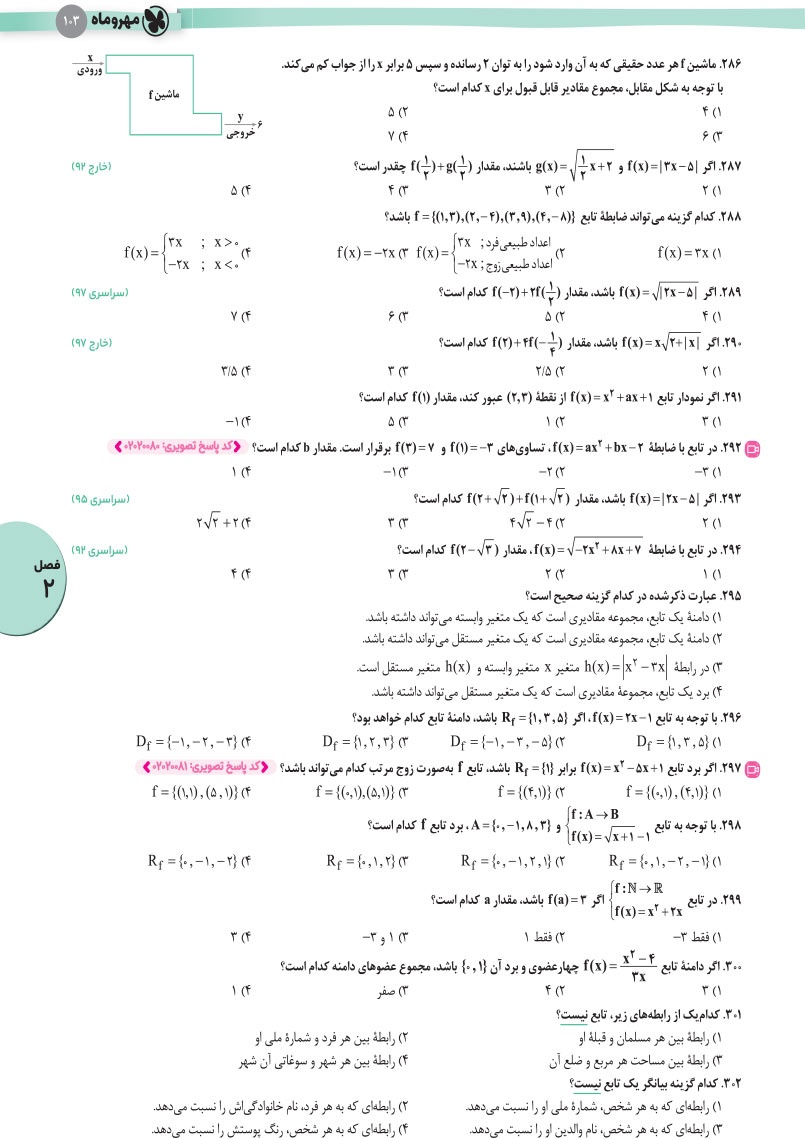 مهروماه ۱۰۳
۲۸۶. ماشین f هر عدد حقیقی که به آن وارد شود را به توان ۲ رسانده و سپس ۵ برابر x را از جواب کم می‌کند.
با توجه به شکل مقابل، مجموع مقادیر قابل قبول برای x کدام است؟
x
ورودی
ماشین f
y
خروجی
۶
۱) ۴ ۲) ۵
۳) ۶ ۴) ۷
۲۸۷. اگر f(x)=|۳x−۵| و g(x)=√(۱/۲ x+۲) باشند، مقدار f(۱/۲)+g(۱/۲) چقدر است؟ (خارج ۹۲)
۱) ۲ ۲) ۳ ۳) ۴ ۴) ۵
۲۸۸. کدام گزینه می‌تواند ضابطهٔ تابع f={(۱,۳),(۲,−۴),(۳,۹),(۴,−۸)} باشد؟
۱) f(x)=۳x ۲) f(x)={۳x ; اعداد طبیعی فرد −۲x ; اعداد طبیعی زوج ۳) f(x)=−۲x ۴) f(x)={۳x ; x>۰ −۲x ; x<۰
۲۸۹. اگر f(x)=√|۲x−۵| باشد، مقدار f(−۲)+۲f(۱/۲) کدام است؟ (سراسری ۹۷)
۱) ۴ ۲) ۵ ۳) ۶ ۴) ۷
۲۹۰. اگر f(x)=x√(۲+|x|) باشد، مقدار f(۲)+۴f(−۱/۴) کدام است؟ (خارج ۹۷)
۱) ۲ ۲) ۲/۵ ۳) ۳ ۴) ۳/۵
۲۹۱. اگر نمودار تابع f(x)=x²+ax+۱ از نقطهٔ (۲,۳) عبور کند، مقدار f(۱) کدام است؟
۱) ۳ ۲) ۱ ۳) ۵ ۴) −۱
۲۹۲. در تابع با ضابطهٔ f(x)=ax²+bx−۲، تساوی‌های f(۱)=−۳ و f(۳)=۷ برقرار است. مقدار b کدام است؟ کد پاسخ تصویری: ۰۲۰۲۰۰۸۰
۱) −۳ ۲) −۲ ۳) −۱ ۴) ۱
۲۹۳. اگر f(x)=|۲x−۵| باشد، مقدار f(۲+√۲)+f(۱+√۲) کدام است؟ (سراسری ۹۵)
۱) ۲ ۲) ۴√۲−۴ ۳) ۳ ۴) ۲√۲+۲
۲۹۴. در تابع با ضابطهٔ f(x)=√(−۲x²+۸x+۷)، مقدار f(۲−√۳) کدام است؟ (سراسری ۹۲)
۱) ۱ ۲) ۲ ۳) ۳ ۴) ۴
فصل
۲
۲۹۵. عبارت ذکرشده در کدام گزینه صحیح است؟
۱) دامنهٔ یک تابع، مجموعه مقادیری است که یک متغیر وابسته می‌تواند داشته باشد.
۲) دامنهٔ یک تابع، مجموعه مقادیری است که یک متغیر مستقل می‌تواند داشته باشد.
۳) در رابطهٔ h(x)=|x²−۳x| متغیر x متغیر وابسته و h(x) متغیر مستقل است.
۴) برد یک تابع، مجموعهٔ مقادیری است که یک متغیر مستقل می‌تواند داشته باشد.
۲۹۶. با توجه به تابع f(x)=۲x−۱، اگر R_f={۱,۳,۵} باشد، دامنهٔ تابع کدام خواهد بود؟
۱) D_f={۱,۳,۵} ۲) D_f={−۱,−۳,−۵} ۳) D_f={۱,۲,۳} ۴) D_f={−۱,−۲,−۳}
۲۹۷. اگر برد تابع f(x)=x²−۵x+۱ برابر R_f={۱} باشد، تابع f به‌صورت زوج مرتب کدام می‌تواند باشد؟ کد پاسخ تصویری: ۰۲۰۲۰۰۸۱
۱) f={(۰,۱),(۴,۱)} ۲) f={(۴,۱)} ۳) f={(۰,۱),(۵,۱)} ۴) f={(۱,۱),(۵,۱)}
۲۹۸. با توجه به تابع {f:A→B f(x)=√(x+۱)−۱ و A={۰,−۱,۸,۳}، برد تابع f کدام است؟
۱) R_f={۰,۱,−۲,−۱} ۲) R_f={۰,−۱,۲,۱} ۳) R_f={۰,۱,۲} ۴) R_f={۰,−۱,−۲}
۲۹۹. در تابع {f:ℕ→ℝ f(x)=x²+۲x اگر f(a)=۳ باشد، مقدار a کدام است؟
۱) فقط ۳− ۲) فقط ۱ ۳) ۱ و ۳− ۴) ۳
۳۰۰. اگر دامنهٔ تابع f(x)=(x²−۴)/۳x چهارعضوی و برد آن {۰,۱} باشد، مجموع عضوهای دامنه کدام است؟
۱) ۳ ۲) ۴ ۳) صفر ۴) ۱
۳۰۱. کدام‌یک از رابطه‌های زیر، تابع نیست؟
۱) رابطهٔ بین هر مسلمان و قبلهٔ او ۲) رابطهٔ بین هر فرد و شمارهٔ ملی او
۳) رابطهٔ بین مساحت هر مربع و ضلع آن ۴) رابطهٔ بین هر شهر و سوغاتی آن شهر
۳۰۲. کدام گزینه بیانگر یک تابع نیست؟
۱) رابطه‌ای که به هر شخص، شمارهٔ ملی او را نسبت می‌دهد. ۲) رابطه‌ای که به هر فرد، نام خانوادگی‌اش را نسبت می‌دهد.
۳) رابطه‌ای که به هر شخص، نام والدین او را نسبت می‌دهد. ۴) رابطه‌ای که به هر شخص، رنگ پوستش را نسبت می‌دهد.